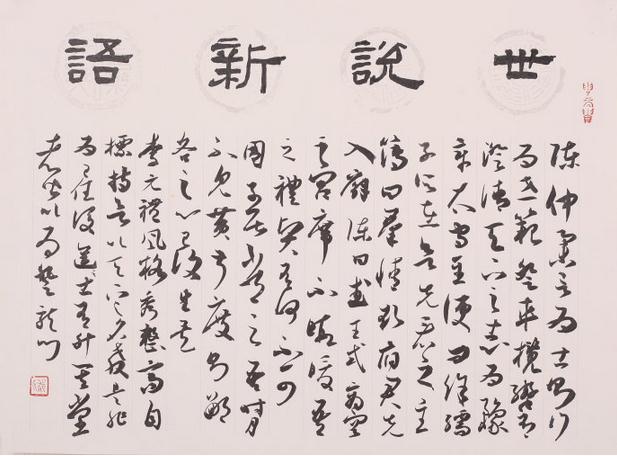 世說新語
陳仲舉言為士則行
為世範登車攬轡有
澄清天下之志為豫
章太守至便問徐孺
子所在欲先看之主
簿曰群情欲府君先
入廨陳曰武王式商容
之閭席不暇煖吾
之禮賢有何不可
周子居常云吾時月
不見黃叔度則鄙
吝之心已復生矣
李元禮風格秀整高自
標持欲以天下名教是非
為己任後進之士有升其堂
者皆以為登龍門